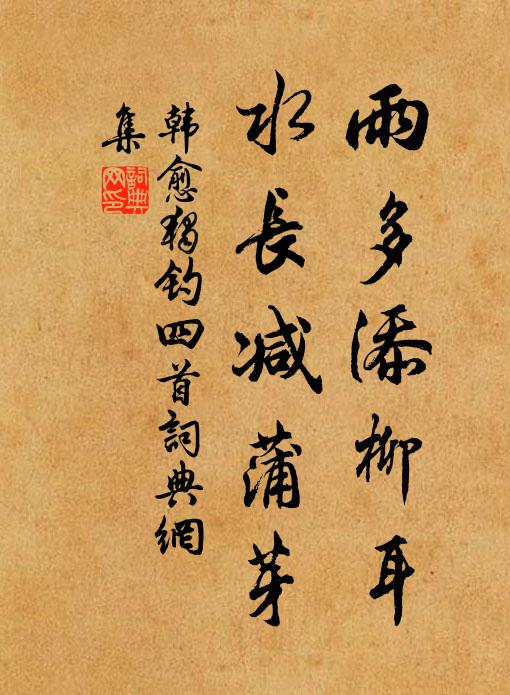 雨多添柳耳
水長减蒲芽
韩愈獨钓四首詞典網
集
詞典
网印